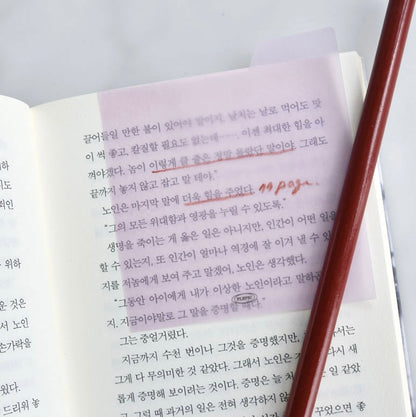 끌어들일 만한 불이 있어야 말이지, 날치는 날로 먹어도 맛
이 썩 좋고, 칼질할 필요도 없는데……. 이젠 최대한 힘을 아
껴야겠다. 놈이 이렇게 클 줄은 정말 몰랐단 말이야. 그래도
끝까지 놓지 않고 잡고 말 테야."
노인은 마지막 말에 더욱 힘을 주었다. 99 page.
"그의 모든 위대함과 영광을 누릴 수 있도록."
생명을 죽이는 게 옳은 일은 아니지만, 인간이 어떤 일을
할 수 있는지, 또 인간이 얼마나 역경에 잘 이겨 낼 수 있
지를 저놈에게 보여 주고 말겠어, 노인은 생각했다.
"그동안 아이에게 내가 이상한 노인이라고 말하곤
지. 지금이야말로 그 말을 증명할 때다."
그는 중얼거렸다.
지금까지 수천 번이나 그것을 증명했지만, 지
그에게 다 무의미한 것 같았다. 그래서 노인은 지 다시 새
롭게 증명해 보이려는 것이다. 증명은 늘 처 일 같았
고, 그럴 때 과거의 일은 전혀 생각하지 않
하
지도
뢰인
위하
운 것은
서 노인
손가락을
있었다.
드리워 놓